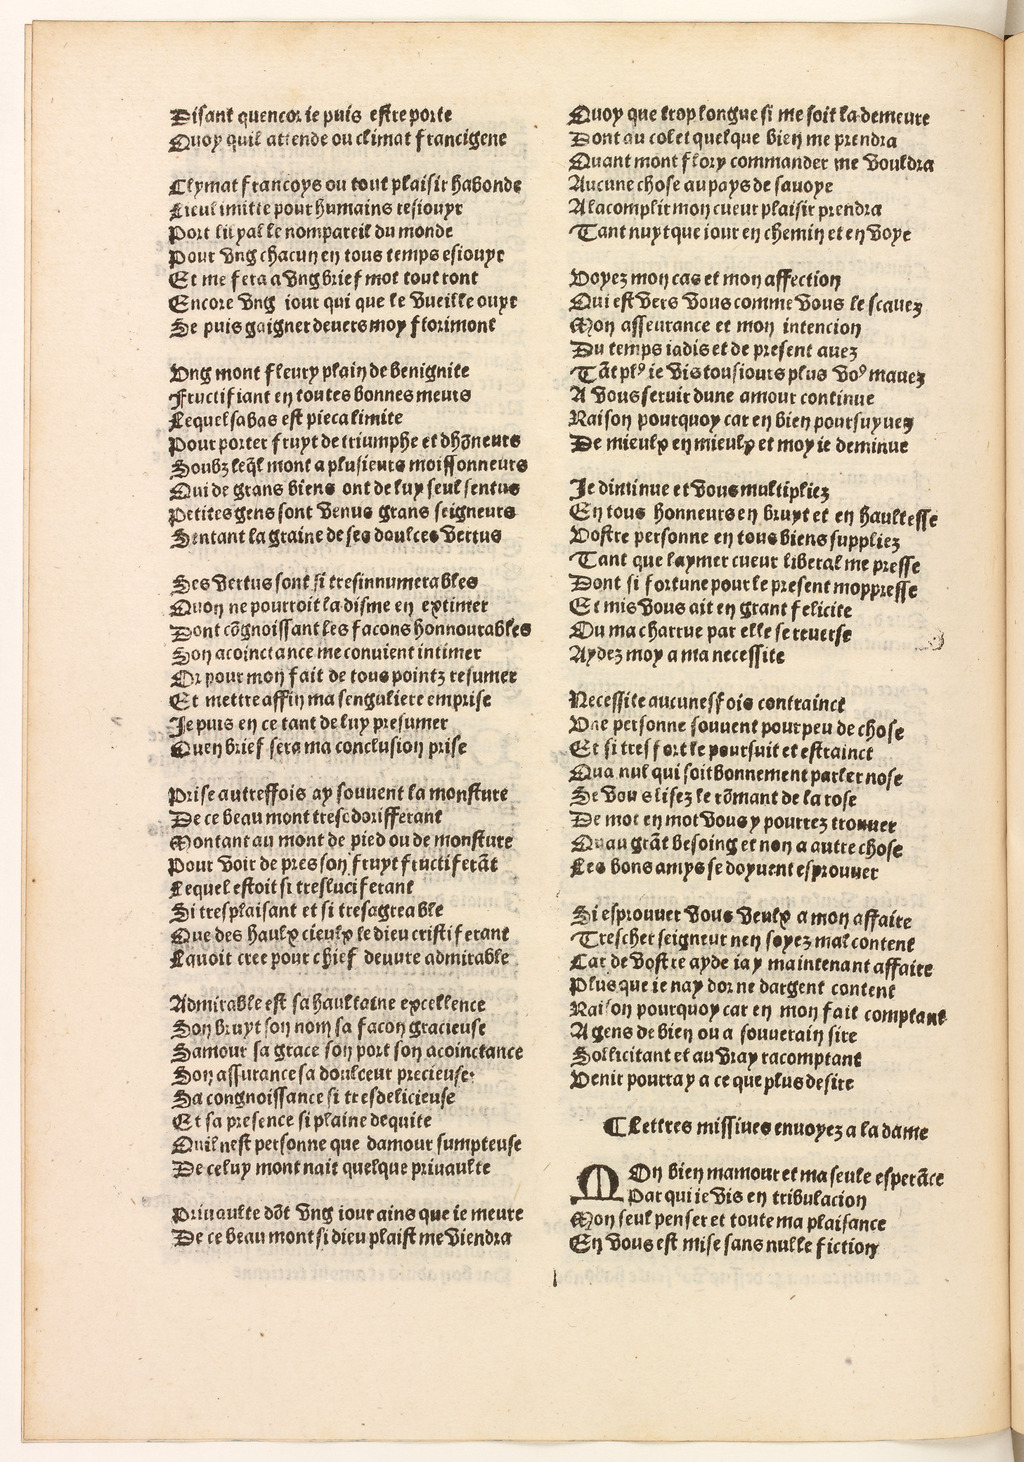 Disant quencor ie puis estre porte
Quoy quil attende ou climat francigene
Clymat francoys ou tout plaisir habonde
Lieu limitie pour humains resiouyr
Port liyal le nompareil du monde
Pour vng chacun en tous temps esiouyr
Et me fera a vng brief mot tout ront
Encore vng iour qui que le vueille ouyr
Se puis gaigner deuers moy florimont
Vng mont fleury plain de benignite
Fructifiant en toutes bonnes meurs
Lequel sabas est pieca limite
Pour porter fruyt de triumphe et dhōneurs
Soubz leq̄l mont a plusieurs moissonneurs
Qui de grans biens ont de luy seul sentus
Petites gens sont venus grans seigneurs
Sentant la graine de ses doulces vertus
Ses vertus sont si tresinnumerables
Quon ne pourroit la disme en extimer
Dont cōgnoissant les facons honnourables
Son acoinctance me conuient intimer
Or pour mon fait de tous pointz resumer
Et mettre affin ma senguliere emprise
Je puis en ce tant de luy presumer
Quen brief sera ma conclusion prise
Prise autreffois ay souuent la monsture
De ce beau mont tresedorifferant
Montant au mont de pied ou de monsture
Pour voir de pres son fruyt fructiferāt
Lequel estoit si tresluciferant
Si tresplaisant et si tresagreable
Que des haulx cieulx le dieu cristiferant
Lauoit cree pour chief deuure admirable
Admirable est sa haultaine excellence
Son bruyt son nom sa facon gracieuse
Samour sa grace son port son acoinctance
Son assurance sa doulceur precieuse
Sa congnoissance si tresdelicieuse
Et sa presence si plaine dequite
Quil nest personne que damour sumpteuse
De celuy mont nait quelque priuaulte
Priuaulte dōt vng iour ains que ie meure
De ce beau mont si dieu plaist me viendra
Quoy que trop longue si me soit la demeure
Dont au colet quelque bien me prendra
Quant mont flory commander me vouldra
Aucune chose au pays de sauoye
A lacomplir mon cueur plaisir prendra
Tant nuyt que iour en chemin et en voye
Voyez mon cas et mon affection
Qui est vers vous comme vous le scauez
Mon asseurance et mon intencion
Du temps iadis et de present auez
Tāt plꝰ ie vis tousiours plus voꝰ mauez
A vous seruir dune amour continue
Raison pourquoy car en bien poursuyuez
De mieulx en mieulx et moy ie deminue
Je diminue et vous multipliez
En tous honneurs en bruyt et en haultesse
Vostre personne en tous biens suppliez
Tant que laymer cueur liberal me presse
Dont si fortune pour le present moppresse
Et mis vous ait en grant felicite
Ou ma charrue par elle se reuerse
Aydez moy a ma necessite
Necessite aucunesfois contrainct
Vne personne souuent pour peu de chose
Et si tresfort le poursuit et estrainct
Qua nul qui soit bonnement parler nose
Se vous lisez le rōmant de la rose
De mot en mot vous y pourrez trouuer
Quau grāt besoing et non a autre chose
Les bons amys se doyuent esprouuer
Si esprouuer vous veulx a mon affaire
Trescher seigneur nen soyez mal content
Car de vostre ayde iay maintenant affaire
Plus que ie nay dor ne dargent content
Raison pourquoy car en mon fait comptant
A gens de bien ou a souuerain sire
Sollicitant et au vray racomptant
Venir pourray a ce que plus desire
¶ Lettres missiues enuoyez a la dame
MOn bien mamour et ma seule esperāce
Par qui ie vis en tribulacion
Mon seul penser et toute ma plaisance
En vous est mise sans nulle fiction